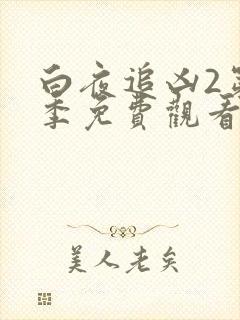 白夜追凶2第
季免費觀看
美人老矣